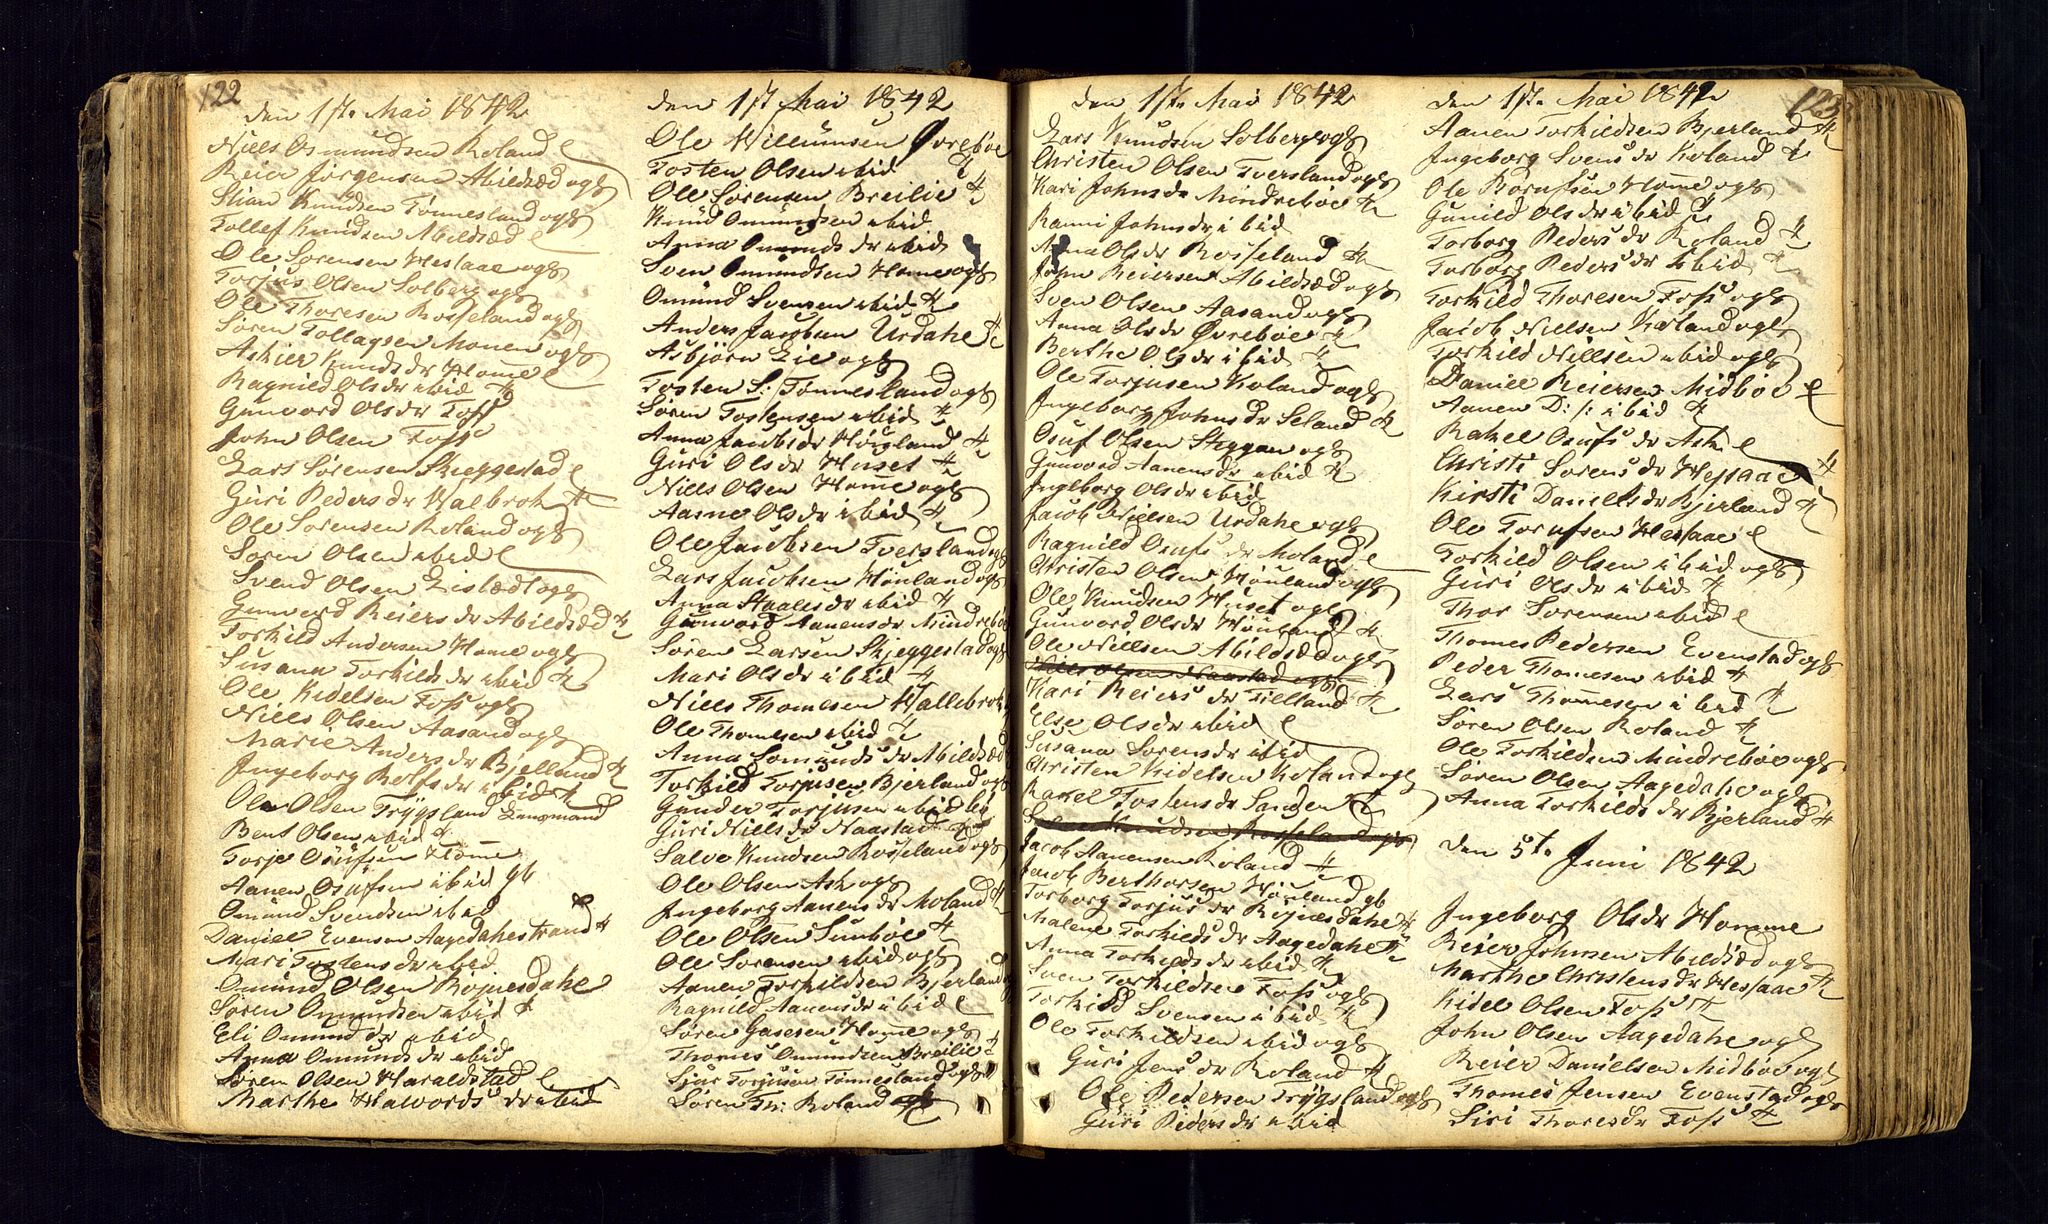 122
den 1ste Mai 1842
Niels Osmundsen Roland
Reier Jørgensen Abildsæd og
Stian Knudsen Tønnesland og
Tollef Knudsen Abildsæd
Ole Sørensen Hesaae og
Torjus Olsen Solberg og
Ole Thoresen Rosseland og
Søren Tollagsen Monen og
Askier Knuds dr Home
Ragnild Ols dr ibid
Gunvord Ols dr Foss
John Olsen Foss
Lars Sørensen Skieggestad
Guri Peders dr Walbrok
Ole Sørensen Roland og
Søren Olsen ibid
Svend Olsen og
Gunvord Reiers dr Abildsæd
Torkild Andersen Home og
Susana Torkilds dr ibid
Ole Kidelsen Foss og
Niels Olsen Aasand og
Marie Anders dr Bjelland
Ingeborg Rolfs dr ibid
Ole Olsen Trygsland Langmand
Bent Olsen ibid
Torje Osufsen Home
Aanen Osufsen ibid gb
Omund Svendsen ibid
Daniel Evensen Aagedahlstrand
Mari Tostens dr ibid
Omund Olsen Røinesdahl
Søren Omundsen ibid
Eli Omunds dr ibid
Anna Omunds dr ibid
Søren Olsen Haraldstad
Marthe Halvords dr ibid
den 1st Mai 1842
Ole Willumsen Øvrebøe
Tosten Olsen ibid
Ole Sørensen Breilie
Knud Omundsen ibid
Anna Omunds dr ibid
Sven Omundsen Home og
Omund Svensen ibid
Anders Jacobsen Urdahl
Asbjørn Lie og
Tosten S: Tønnesland og
Søren Tostensen ibid
Anna Jacobs dr Høisland
Guri Ols dr Huset
Niels Olsen Home og
Aasne Ols dr ibid
Ole Jacobsen Tversland og
Lars Jacobsen Høuland og
Anna Staales dr ibid
Gunvord Aanens dr Mindrebøe
Søren Larsen Skjeggestad og
Mari Ols dr ibid
Niels Thomesen Wallebrok
Ole Thomesen ibid
Anna Somunds dr Abildsæd
Torkild Torjusen Bjerland og
Gunder Torjusen ibid
Guri Niels dr Naastad
Salve Knudsen Rosseland og
Ole Olsen Ask og
Ingeborg Aanens dr Moland
Ole Olsen Sunbøe
Ole Sørensen ibid og
Aanen Torkildsen Bjerland
Ragnild Aanens dr ibid
Søren Gasesen Home og
Thomes Omundsen Breilie
Sjur Torjusen Tønnesland og
Søren Th: Roland
den 1ste Mai 1842
Lars Knudsen Solberg og
Christen Olsen Tversland og
Kari Johns dr Mindrebøe
Ranni Johns dr ibid
Anna Ols dr Rosseland
John Reiersen Abildsæd og
Sven Olsen Aasand og
Anna Ols dr Øvrebøe
Berthe Ols dr ibid
Ole Torjusen Roland og
Ingeborg Johns dr Seland
Osuf Olsen Skeggan og
Gunvord Aanens dr ibid
Ingeborg Ols dr ibid
Jacob Nielsen Urdahl og
Ragnild Osufs dr Moland
Christen Olsen Høuland og
Ole Knudsen Huset og
Gunvord Ols dr Høuland
Ole Nielsen Abildsæd og
Niels Olsen Naastad og
Kari Reiers dr Fidland
Else Ols dr ibid
Susana Sørens dr ibid
Christen Kidelsen Roland og
Rakel Tostens dr Sanden
Salve Knudsen Rosseland og
Jacob Aanensen Roland
Jacob Berthorsen Høuland gb
Torborg Torjus dr Røinesdahl
Malene Torkilds dr Aagedahl
Anna Torkilds dr ibid
Sven Torkildsen Foss og
Torkild Svensen ibid
Ole Torkildsen ibid og
Guri Jens dr Roland
Ole Pedersen Trygsland og
Guri Peders dr ibid
123
den 1ste Mai 1842
Aanen Torkildsen Bjerland
Ingeborg Svens dr Roland
Ole Home og
Gunild Ols dr ibid
Torborg Peders dr Roland
Torborg Peders dr ibid
Torkild Thoresen Foss og
Jacob Nielsen Karland og
Torkild Nielsen ibid og
Daniel Reiersen Midbøe
Aanen D: f: ibid
Rakel Osufs dr Ask
Christi Sørens dr Hessaae
Kirsti Daniels dr Bjerland
Ole Torufsen Hessaae
Torkild Olsen ibid og
Guri Ols dr ibid
Thor Sørensen ibid
Thomes Pedersen Evenstad og
Peder Thomesen ibid
Lars Thomesen ibid
Søren Olsen Roland
Ole Torkildsen Mindrebøe og
Søren Olsen Aagedahl og
Anna Torkilds dr Bjerland
den 5te Juni 1842
Ingeborg Ols dr Homme
Reier Johnsen Abildsæd og
Marthe Christens dr Hessaae
Kidel Olsen Foss
John Olsen Aagedahl og
Reier Danielsen Midbøe og
Thomes Jensen Evenstad og
Siri Thores dr Foss